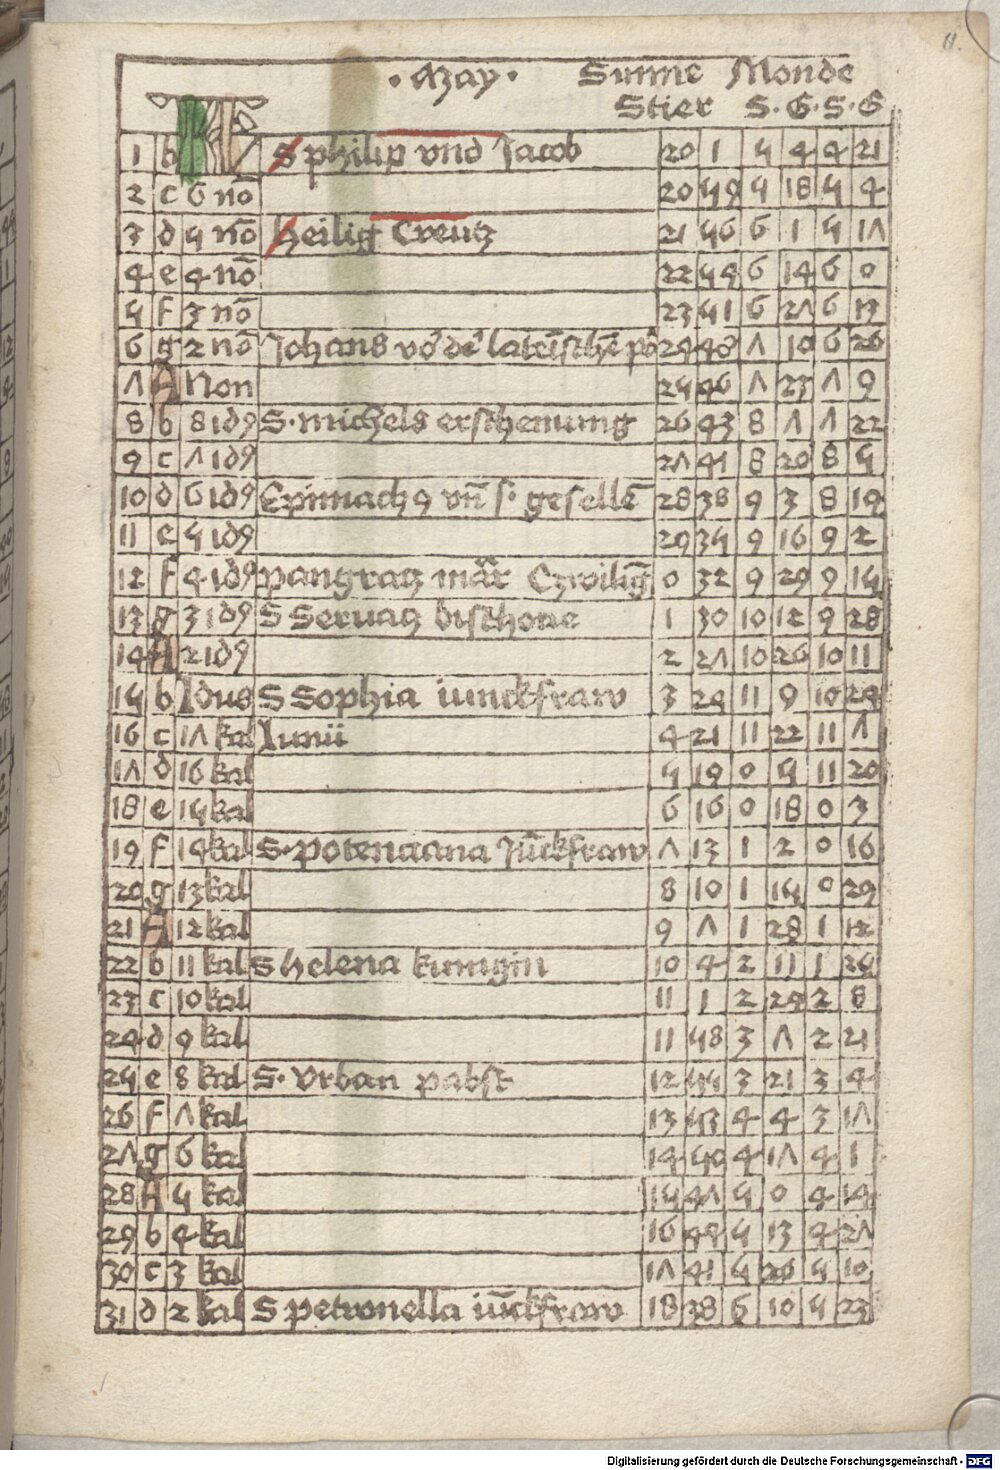 11.
· May · Sunne Monde
Stier S·G·S·G
1 b KL S philip vnd Jacob 20 1 5 4 4 21
2 c 6 nō 20 59 5 18 5 4
3 d 5 nō heilig Creutz 21 56 6 1 5 17
4 e 4 nō 22 54 6 14 6 0
5 f 3 nō 23 51 6 27 6 13
6 g 2 nō Johans vō dē lateīschē 24 48 7 10 6 26
7 A Non 25 46 7 23 7 9
8 b 8 idꝰ S·michels erschenung 26 43 8 7 7 22
9 c 7 idꝰ 27 41 8 20 8 5
10 d 6 idꝰ Epimachꝰ vn̄ s· gesellē 28 38 9 3 8 19
11 e 5 idꝰ 29 35 9 16 9 2
12 f 4 idꝰ pangratz 0 32 9 29 9 15
13 g 3 idꝰ S Seruatz bischoue 1 30 10 12 9 28
14 A 2 idꝰ 2 27 10 26 10 11
15 b Idus S Sophia iunckfraw 3 24 11 9 10 24
16 c 17 kal Iunii 4 21 11 22 11 7
17 d 16 kal 5 19 0 5 11 20
18 e 15 kal 6 16 0 18 0 3
19 f 14 kal S·potenciana Jūckfraw 7 13 1 2 0 16
20 g 13 kal 8 10 1 15 0 29
21 A 12 kal 9 7 1 28 1 12
22 b 11 kal S helena kunigin 10 4 2 11 1 25
23 c 10 kal 11 1 2 24 2 8
24 d 9 kal 11 58 3 7 2 21
25 e 8 kal S· Vrban pabst 12 55 3 21 3 4
26 f 7 kal 13 53 4 4 3 17
27 g 6 kal 14 50 4 17 4 1
28 A 5 kal 15 47 5 0 4 14
29 b 4 kal 16 44 5 13 4 27
30 c 3 kal 17 41 5 26 5 10
31 d 2 kal S petronella iūckfraw 18 38 6 10 5 23
Digitalisierung gefördert durch die Deutsche Forschungsgemeinschaft - DFG